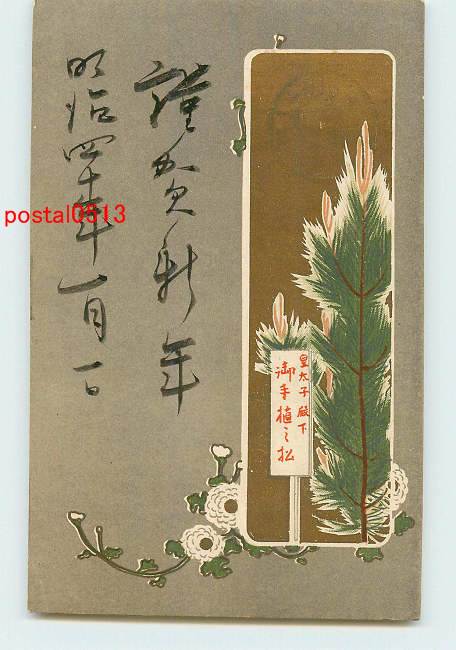 皇太子殿下
御手植之松
謹賀新年
明治四十年一月一日
postal0513